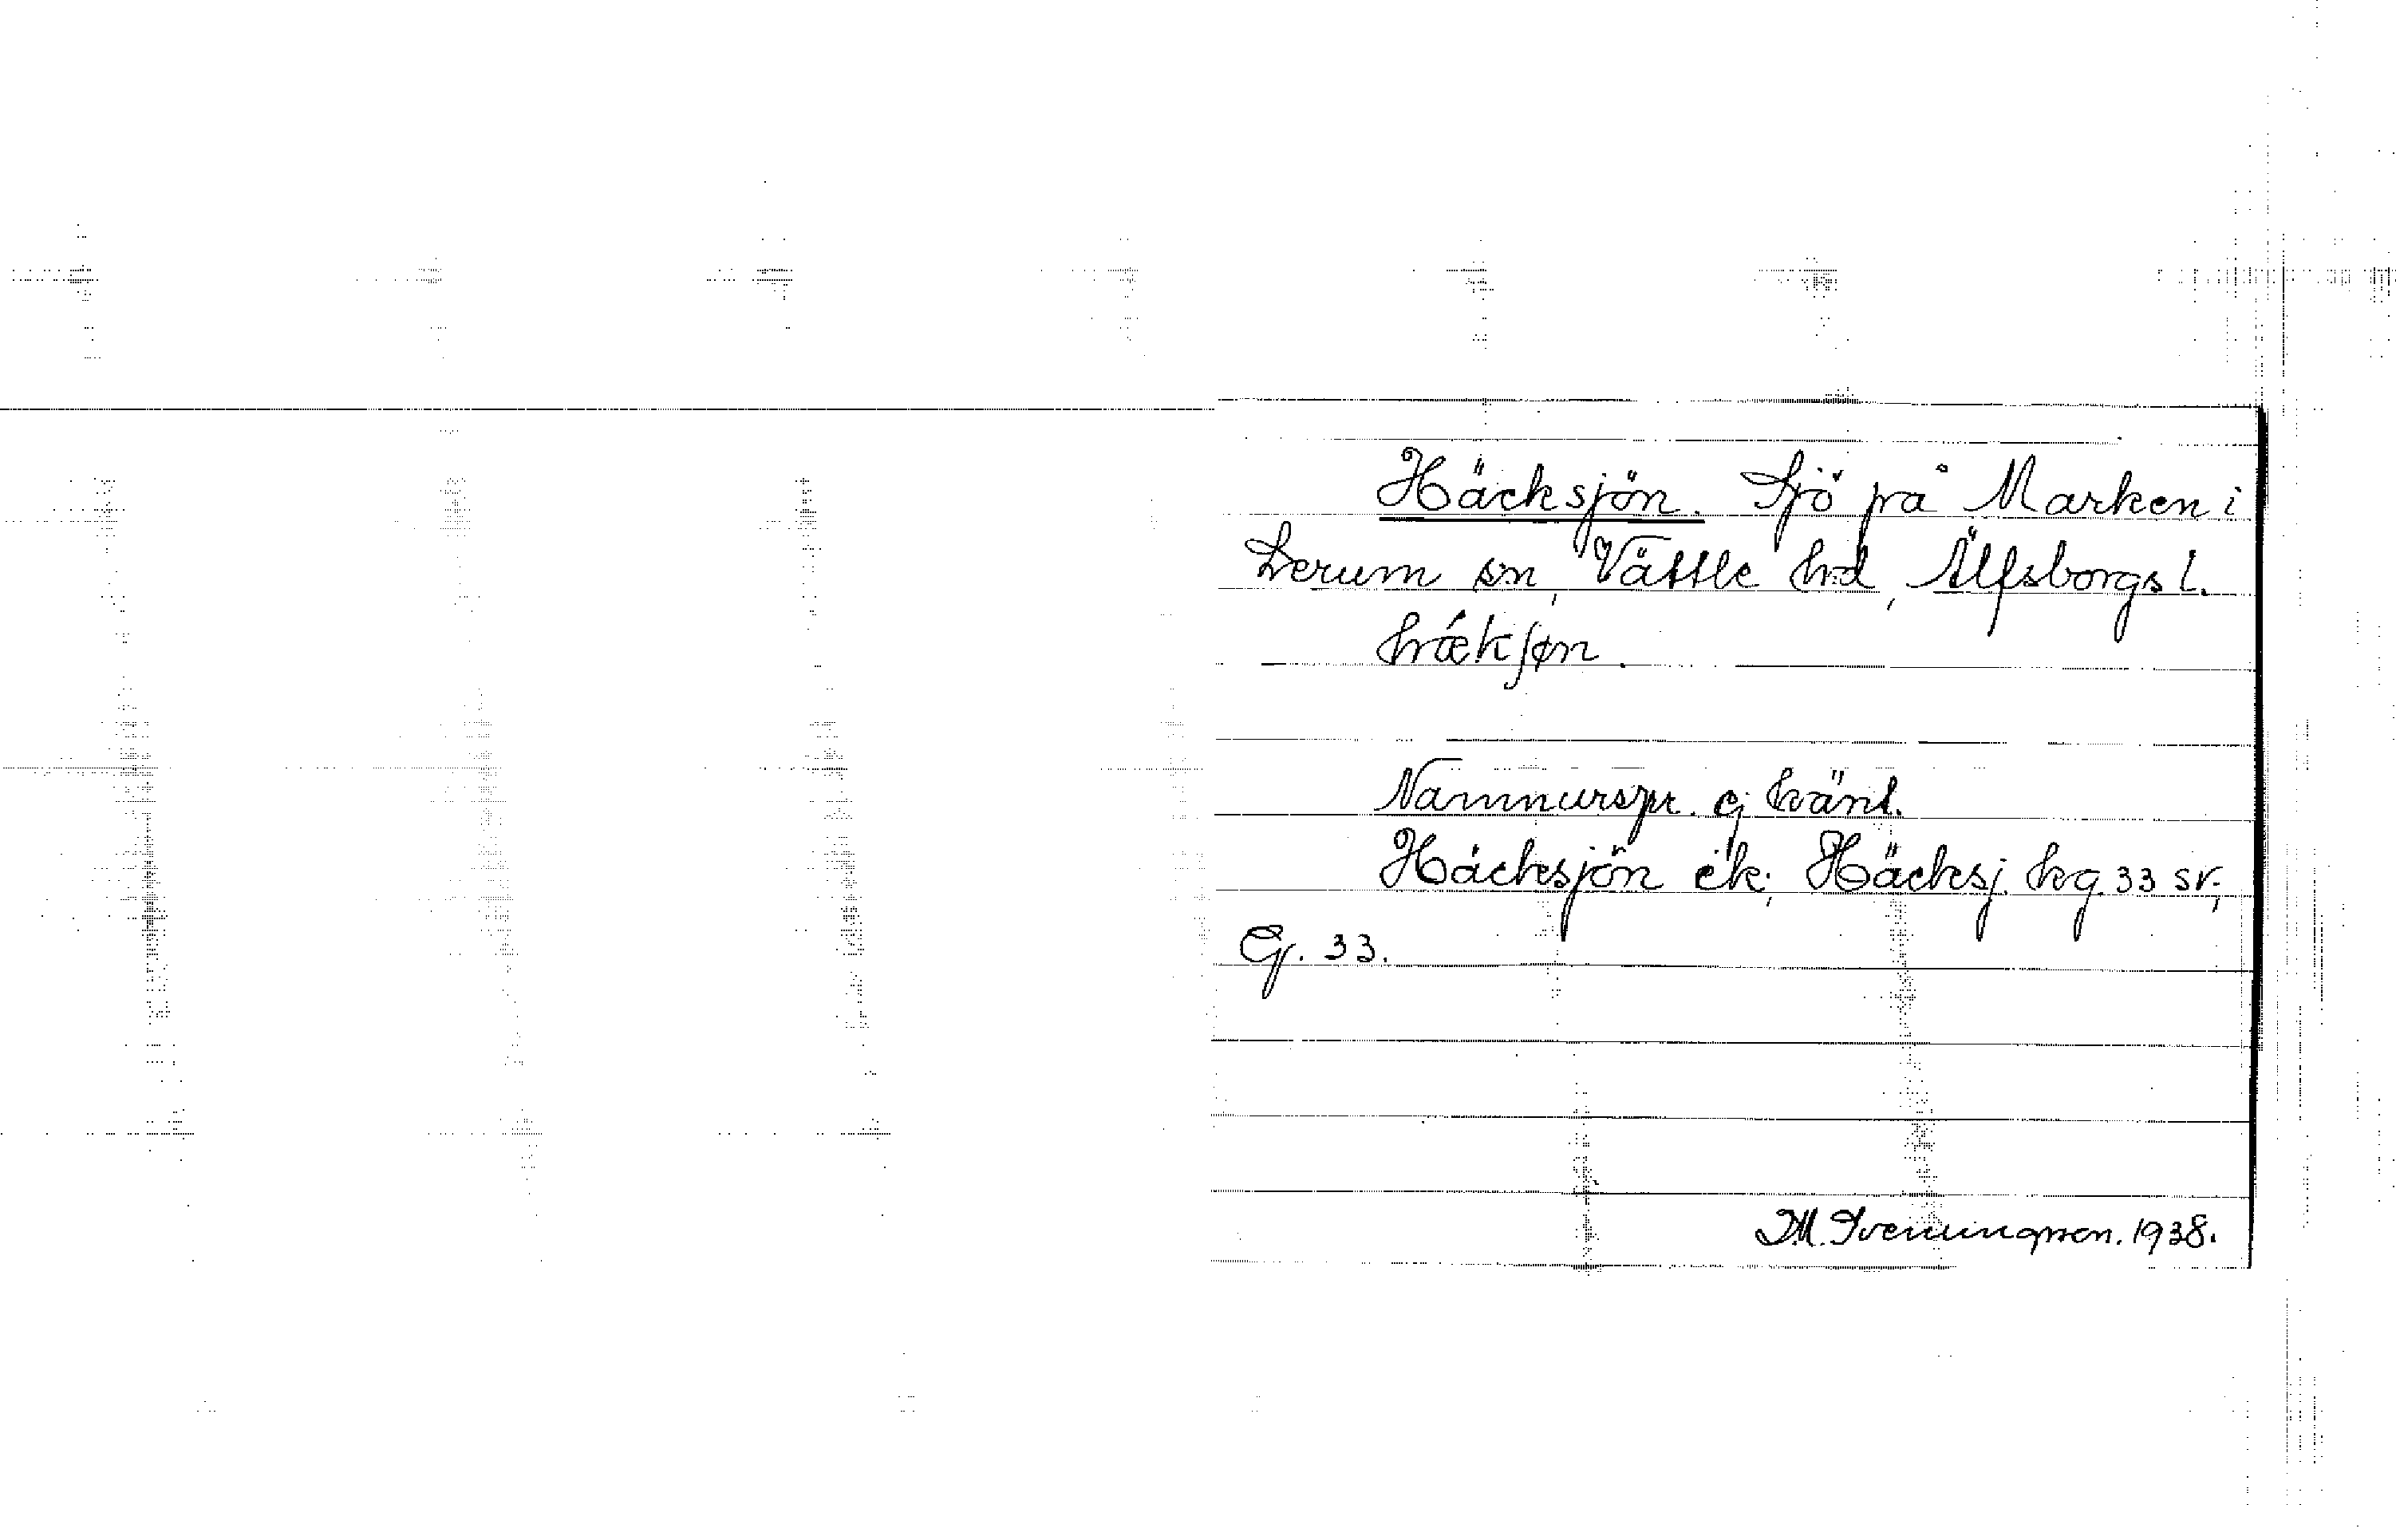 Häcksjön. Sjö på Marken i
Lerum sn, Vättle hd, Älfsborgs l.
hǽkʃøn.
Namnurspr. ej känt.
Häcksjön ek; Häcksj. hg. 33 sv.,
G. 33.
I.M. Svenningson. 1938.